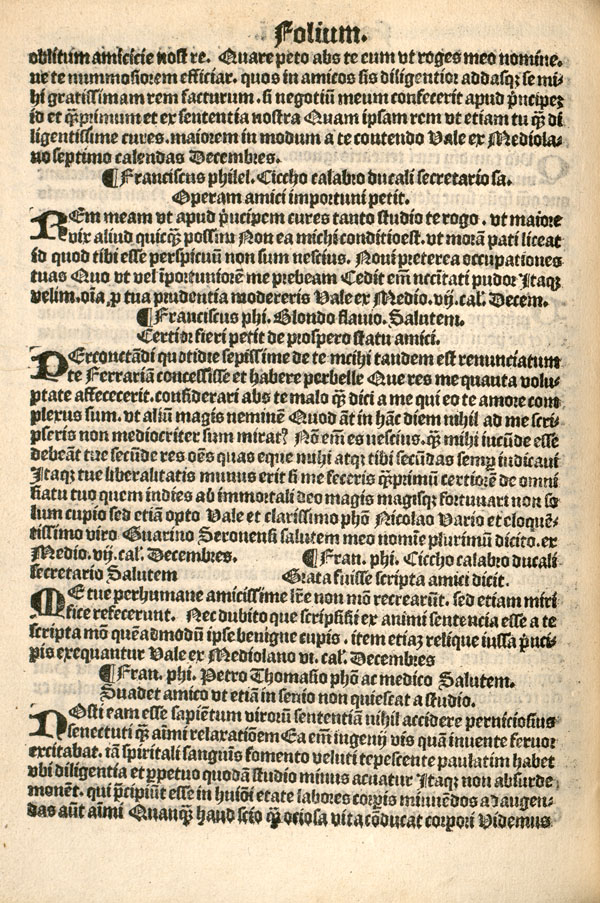 Folium.
oblitum amicicie nostre. Quare peto abs te cum vt roges meo nomine.
ne te nummosiorem efficiar. quos in amicos sis diligentior addasqȝ se mi-
hi gratissimam rem facturum. si negotiū meum confecerit apud p̄ncipeȝ
id et qȝprimum et ex sententia nostra Quam ipsam rem vt etiam tu qȝ di
ligentissime cures. maiorem in modum a te contendo Vale ex Mediola-
no septimo calendas Decembres.
¶Franciscus philel. Ciccho calabro ducali secretario sa.
Operam amici importuni petit.
REm meam vt apud p̄ncipem cures tanto studio te rogo. vt maiore
vix aliud quicqȝ possim Non ea michi conditio est. vt morā pati liceat
id quod tibi esse perspicuū non sum nescius. Noui preterea occupationes
tuas Quo vt vel īportuniorē me prebeam Cedit em̄ nccītati pudor Itaqȝ
velim. oīa ꝓ tua prudentia modereris Vale ex Medio. vij. cal. Decem.
¶Franciscus phi. Blondo flauio. Salutem.
Certior fieri petit de prospero statu amici.
PErconctādi quotidie sepissime de te mcihi tandem est renunciatum
te Ferrariā concessisse et habere perbelle Que res me quanta volu-
ptate affececerit. considerari abs te malo qȝ dici a me qui eo te amore com
plexus sum. vt aliū magis neminē Quod āt in hāc diem nihil ad me scri-
pseris non mediocriter sum mirat⁹ Nō em̄ es nescius. qȝ mihi iucūde esse
debeāt tue secūde res oēs quas eque mihi atqȝ tibi secūdas semꝑ iudicaui
Itaqȝ tue liberalitatis munus erit si me feceris qȝprimū certiorē de omni
statu tuo quem indies ab immortali deo magis magisqȝ fortunari non so
lum cupio sed etiā opto Vale et clarissimo phō Nicolao Vario et eloquē-
tissimo viro Guarino Seronensi salutem meo nomīe plurimū dicito. ex
Medio. vij. cal. Decembres. ¶Fran. phi. Ciccho calabro ducali
secretario Salutem Grata fuisse scripta amici dicit.
ME tue perhumane amicissime lr̄e non mō recrearūt. sed etiam miri
fice refecerunt. Nec dubito que scripsisti ex animi sentencia esse a te
scripta mō quēadmodū ipse benigne cupis. item etiaȝ relique iussa p̄nci-
pis exequantur Vale ex Mediolano vi. cal. Decembres
¶Fran. phi. Petro Thomasio phō ac medico Salutem.
Suadet amico vt etiā in senio non quiescat a studio.
NOsti eam esse sapiētum virorū sententiā nihil accidere perniciosius
senectuti qȝ aīmi relaxatiōem Ea em̄ ingenij vis quā inuente feruor
excitabat. tā spiritali sanguīs fomento veluti tepescente paulatim habet
vbi diligentia et ꝑpetuo quodā studio minus acuatur Itaqȝ non absurde
monēt. qui p̄cipiūt esse in huiōi etate labores corꝑis minuēdos ad augen-
das aūt aīmi Quanqȝ haud scio qȝ ociosa vita cōducat corpori Videmus